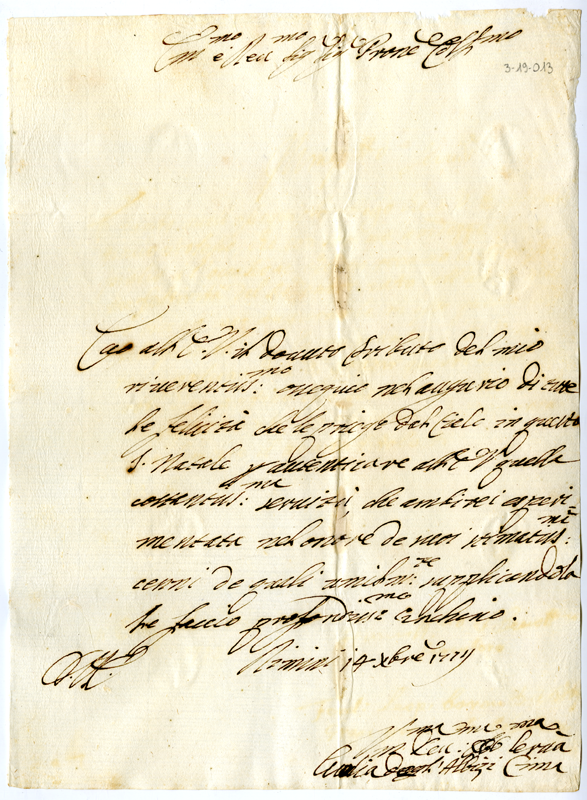 Em.mo e Rev.mo Sig.r Sig.r Prone Coll.mo
3-19-013
all'E.V. il douuto tributo del mio
riuerentiss:mo ossequio nel augurio di tute
le felicità che le prego dal Cielo in questo
S. Natale p autenticare all'E.V. quella
costantiss:ma seruitù che ambirei esperi
mentata nel onore de suoi stimatiss:mi
cenni de quali umilm:te supplicandola
le faccio profondiss:mo inchino.
Rimini 14 Xbre
degl'Albizi Cima